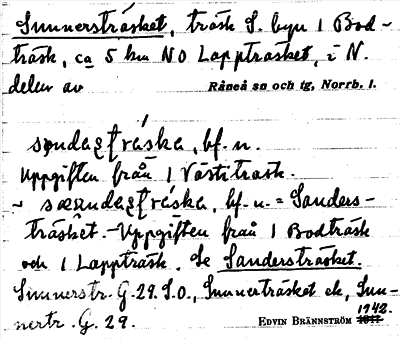 Sunnersträsket, träsk S. byn i Bod-
träsk, ca 5 km NO Lappträsket, i N.
delen av Råneå sn och tg, Norrb. l.
bf. n.
Uppgiften från 1 Västitrask.
~ bf. n. = Sanders-
träsket. - Uppgiften från 1 Bodträsk
och 1 Lappträsk. Se Sandersträsket.
Sunnerstr. G. 29. S.O., Sunnerträsket ek, Sun-
nertr. G. 29. EDVIN BRÄNNSTRÖM 1942.